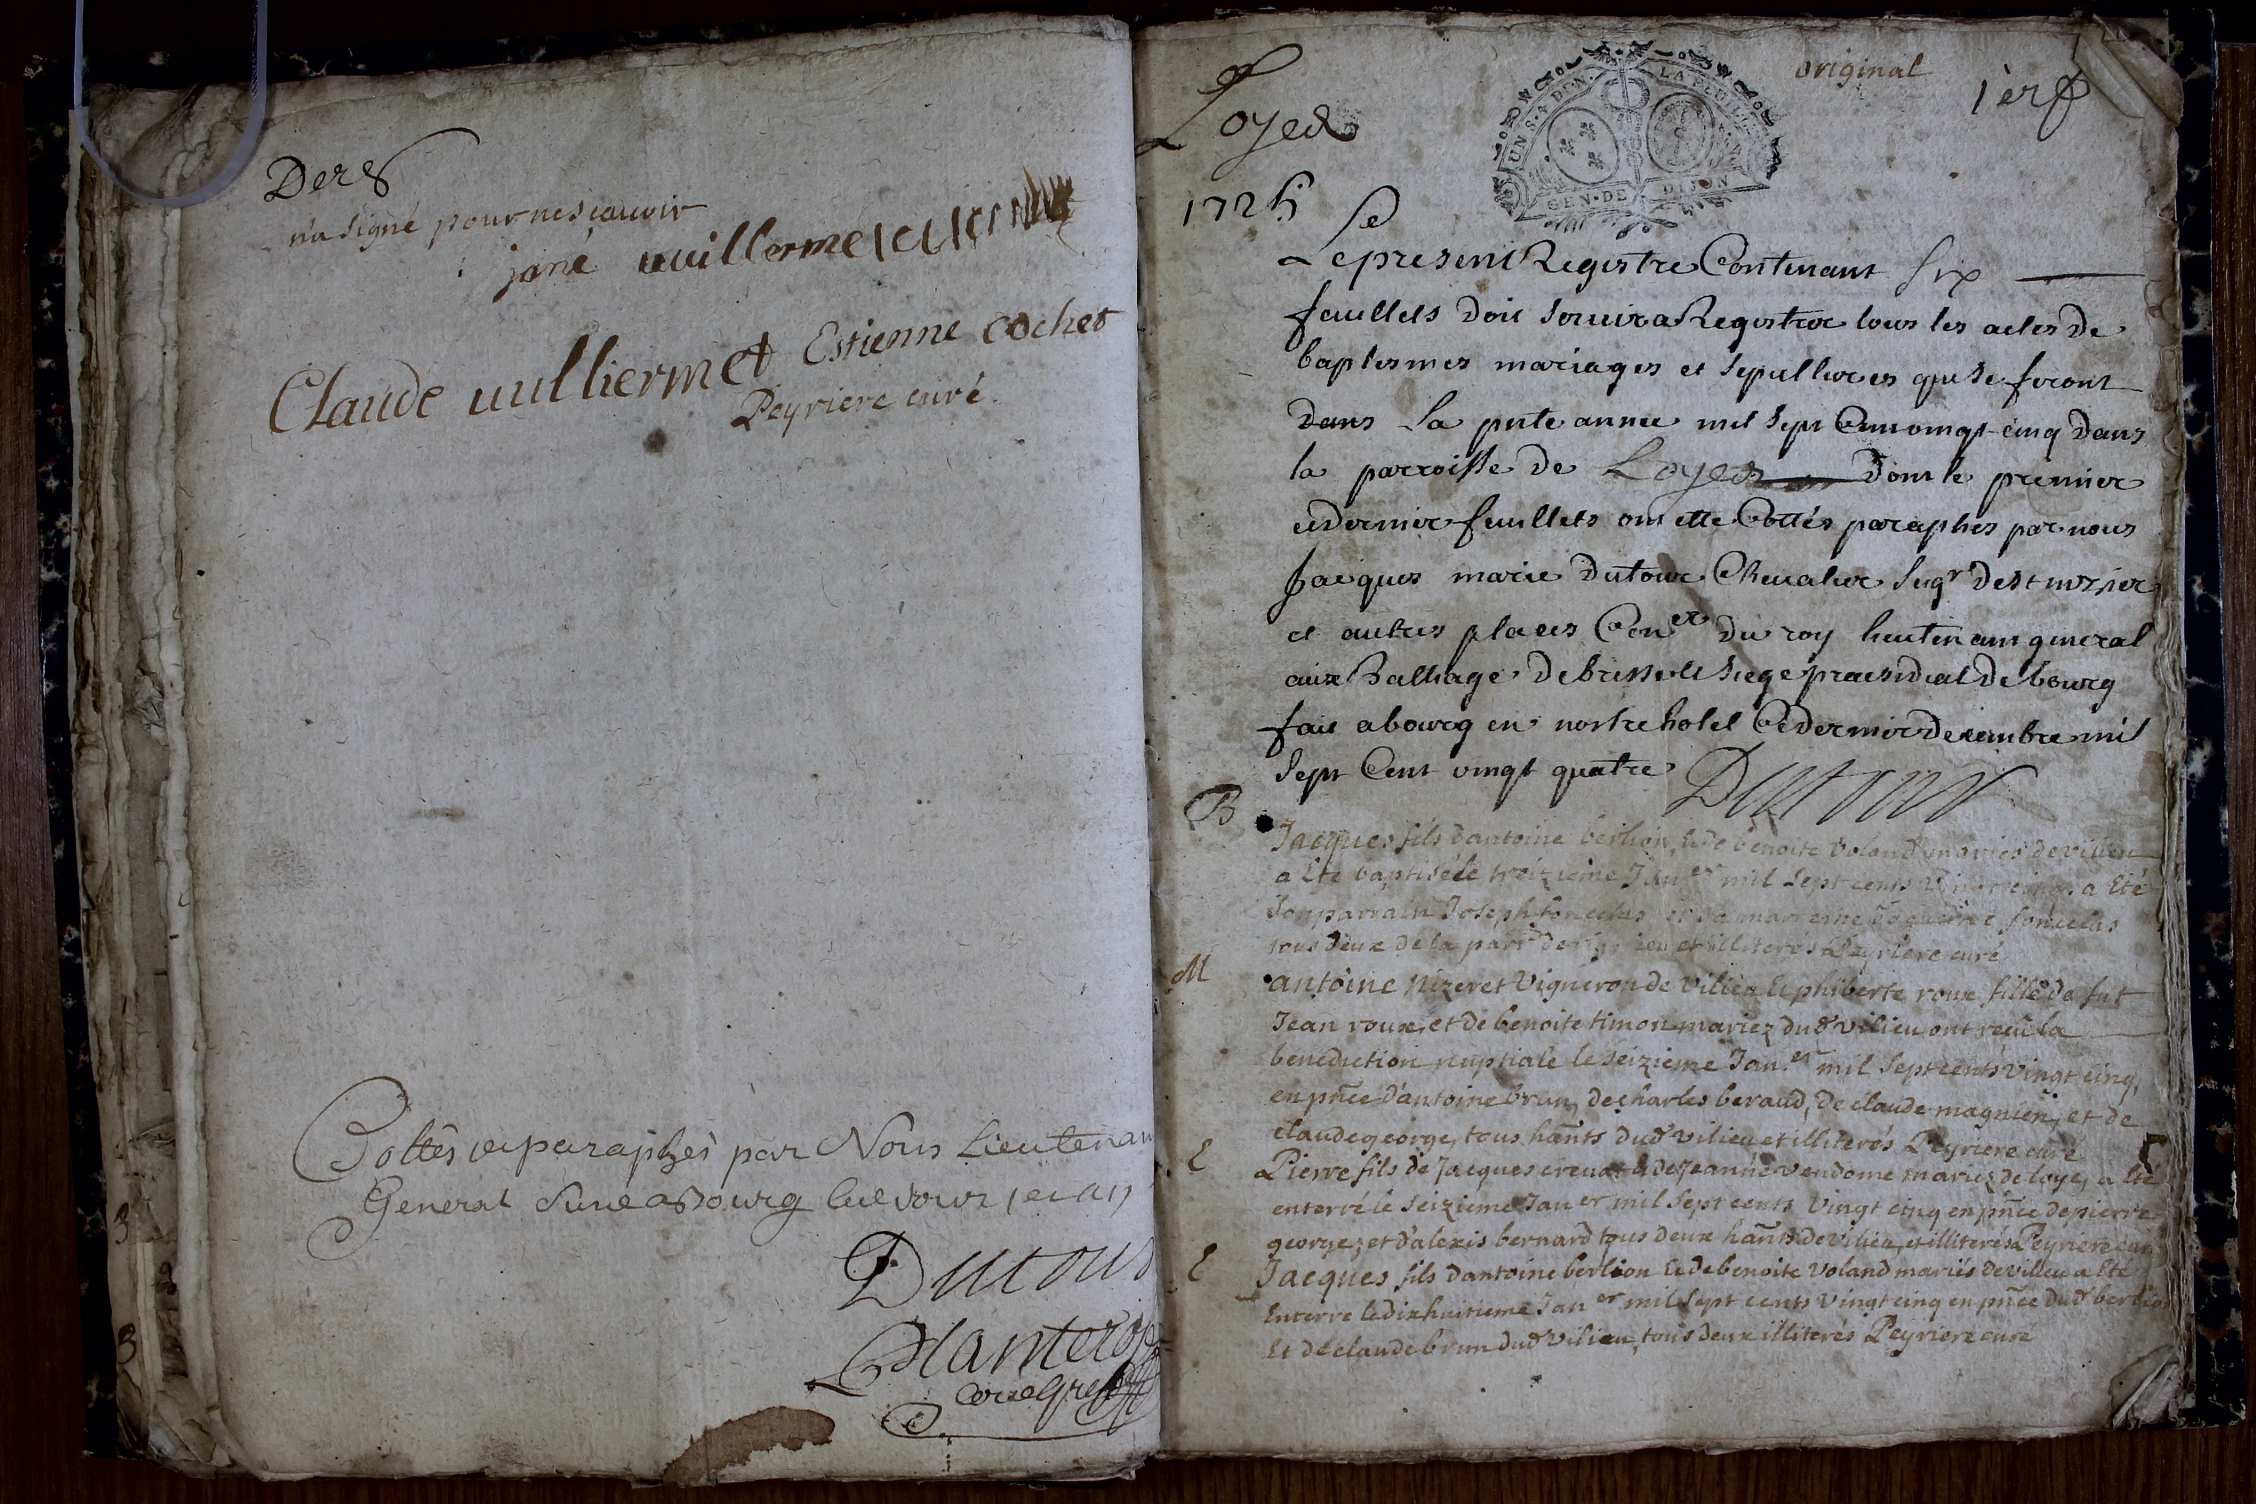 Der
n'a signé pour ne sçauoir
jane uuillerme
Claude uulliermet Estienne cochet
Peyriere curé
Cottés et paraphés par Nous Lieutenan
General a Bourg
Dutour
Original
1er f
Loyes
UN S. 4 DEN. LA FEUILLE
GEN. DE DIJON
1725
Le present Registre Contenant Six
feuillets doit seruir a Registrer tous les actes de
baptesmes mariages et sepultures qui se feront
dans La pnte annee mil sept Cent vingt cinq dans
la parroisse de Loyes dont le premier
et dernier feuillets ont ette Cottés paraphes par nous
Jacques marie Dutour Cheualier Seigr de st
et autres places Coner du roy lieutenant general
aux Balliage de bresse et siege praesidial de bourg
fait a bourg en nostre hotel Ce dernier decembre mil
sept Cent vingt quatre Dutour
B
Jacques fils d'antoine berlion, & de benoite Voland mariés de villieu
a Eté baptisé le treizieme Janer mil sept cents vingt cinq. a Eté
son parrain Joseph et sa marreine
tous deux de la parr de et illiterés Peyriere curé
M
antoine Nizeret Vigneron de Vilieu Et phiberte roux fille de fut
Jean roux, et de benoite timon mariez dud Vilieu ont receu la
benediction nuptiale le seizieme Janer mil sept cents vingt cinq,
en pnce d'antoine brun, de charles beraud, de claude magnien, et de
claude george, tous hants dud Vilieu et illiterés Peyriere curé
E
Pierre fils de Jacques & de Jeanne Vendome mariez de loye, a Eté
enterré le seizieme Janer mil sept cents Vingt cinq en pnce de pierre
george, et d'alexis bernard tous deux hants de Vilieu, et illiterés Peyriere cur
E
Jacques fils d'antoine berlion Et de benoite Voland mariés de villieu a Eté
Enterre le dix huitieme Janer mil sept cents Vingt cinq en pnce dud berlio
Et de claude brun dud Vilieu, tous deux illiterés Peyriere curé